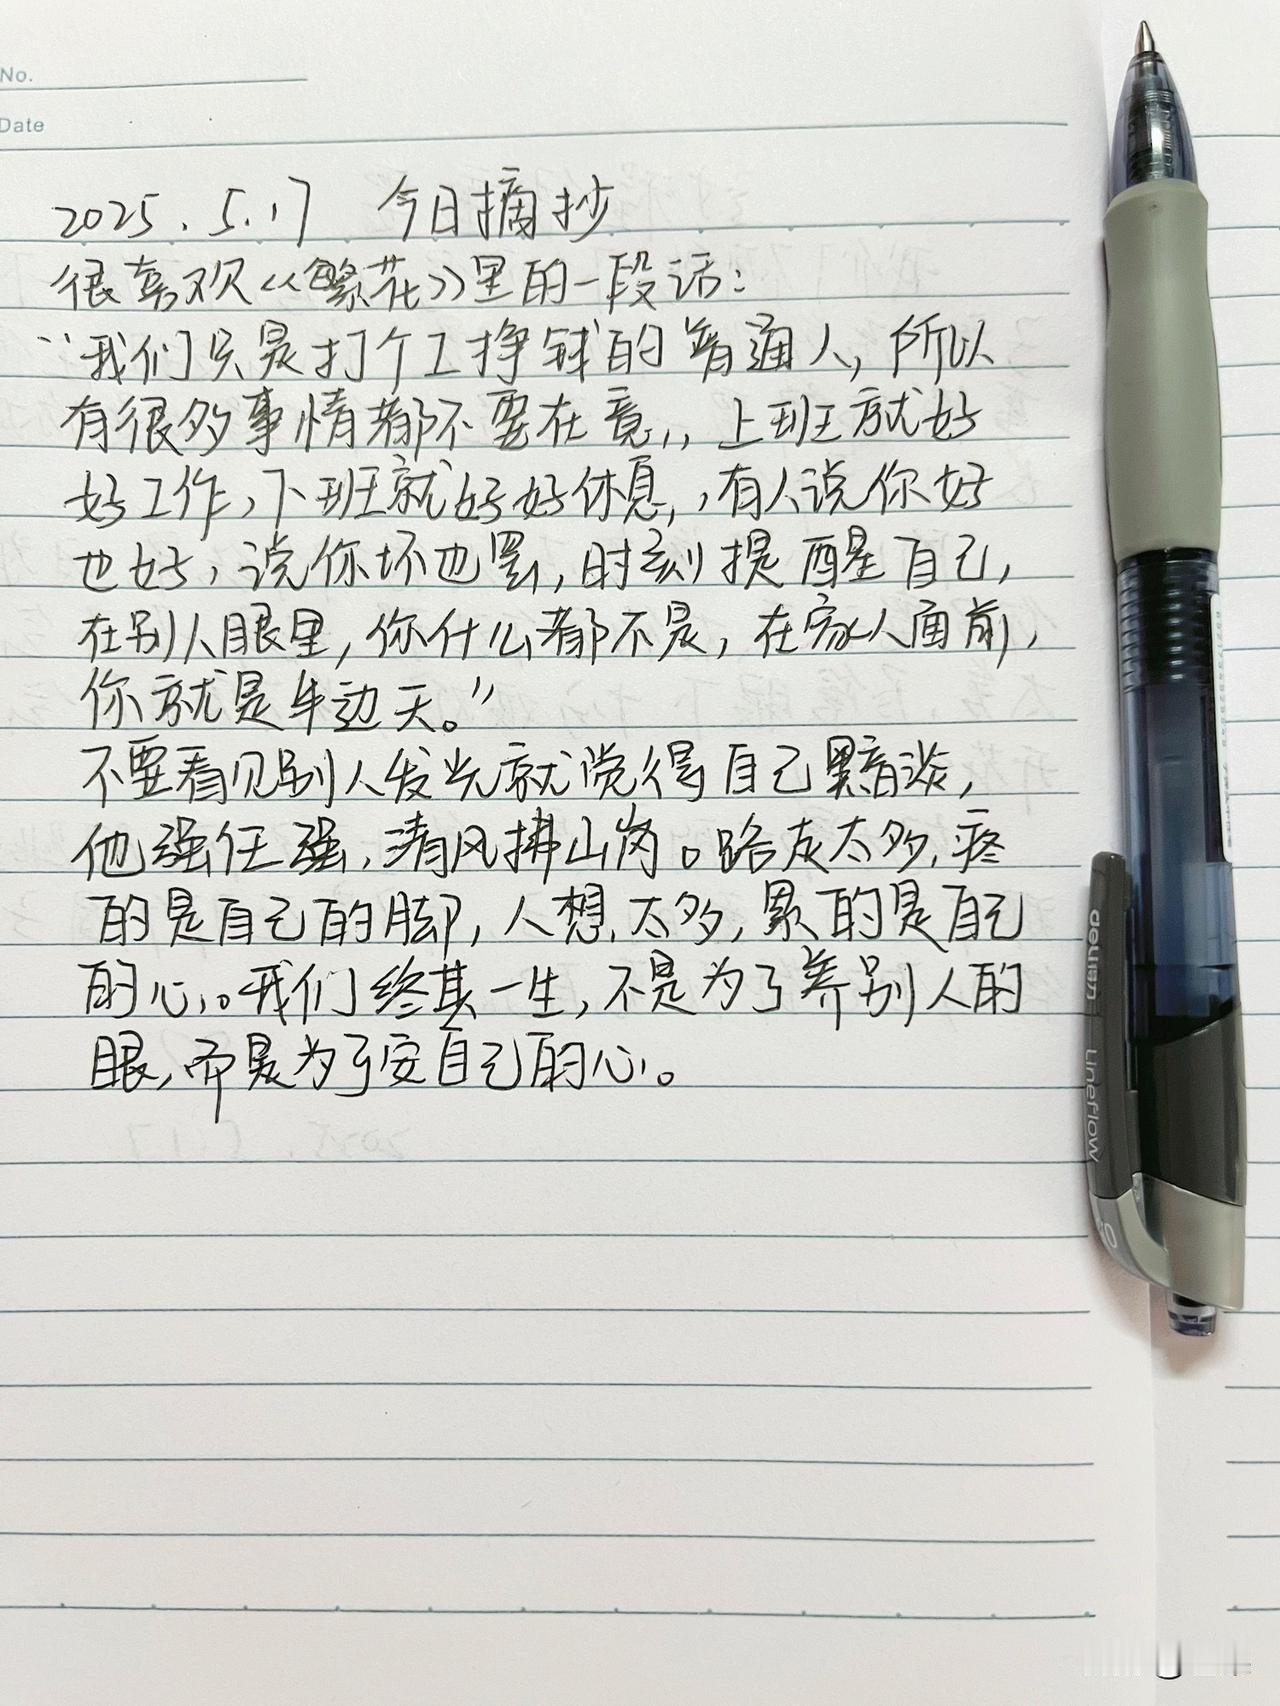 No.
Date
2025.5.17 今日摘抄
很喜欢《繁花》里的一段话：
“我们只是打个工挣钱的普通人，所以
有很多事情都不要在意，上班就好
好工作，下班就好好休息，有人说你好
也好，说你坏也罢，时刻提醒自己，
在别人眼里，你什么都不是，在家人面前，
你就是半边天。”
不要看见别人发光就觉得自己黯淡，
他强任强，清风拂山岗。路友太多，疼
的是自己的脚，人想太多，累的是自己
的心。我们终其一生，不是为了养别人的
眼，而是为了安自己的心。
2025.5.17
deli
uneflow